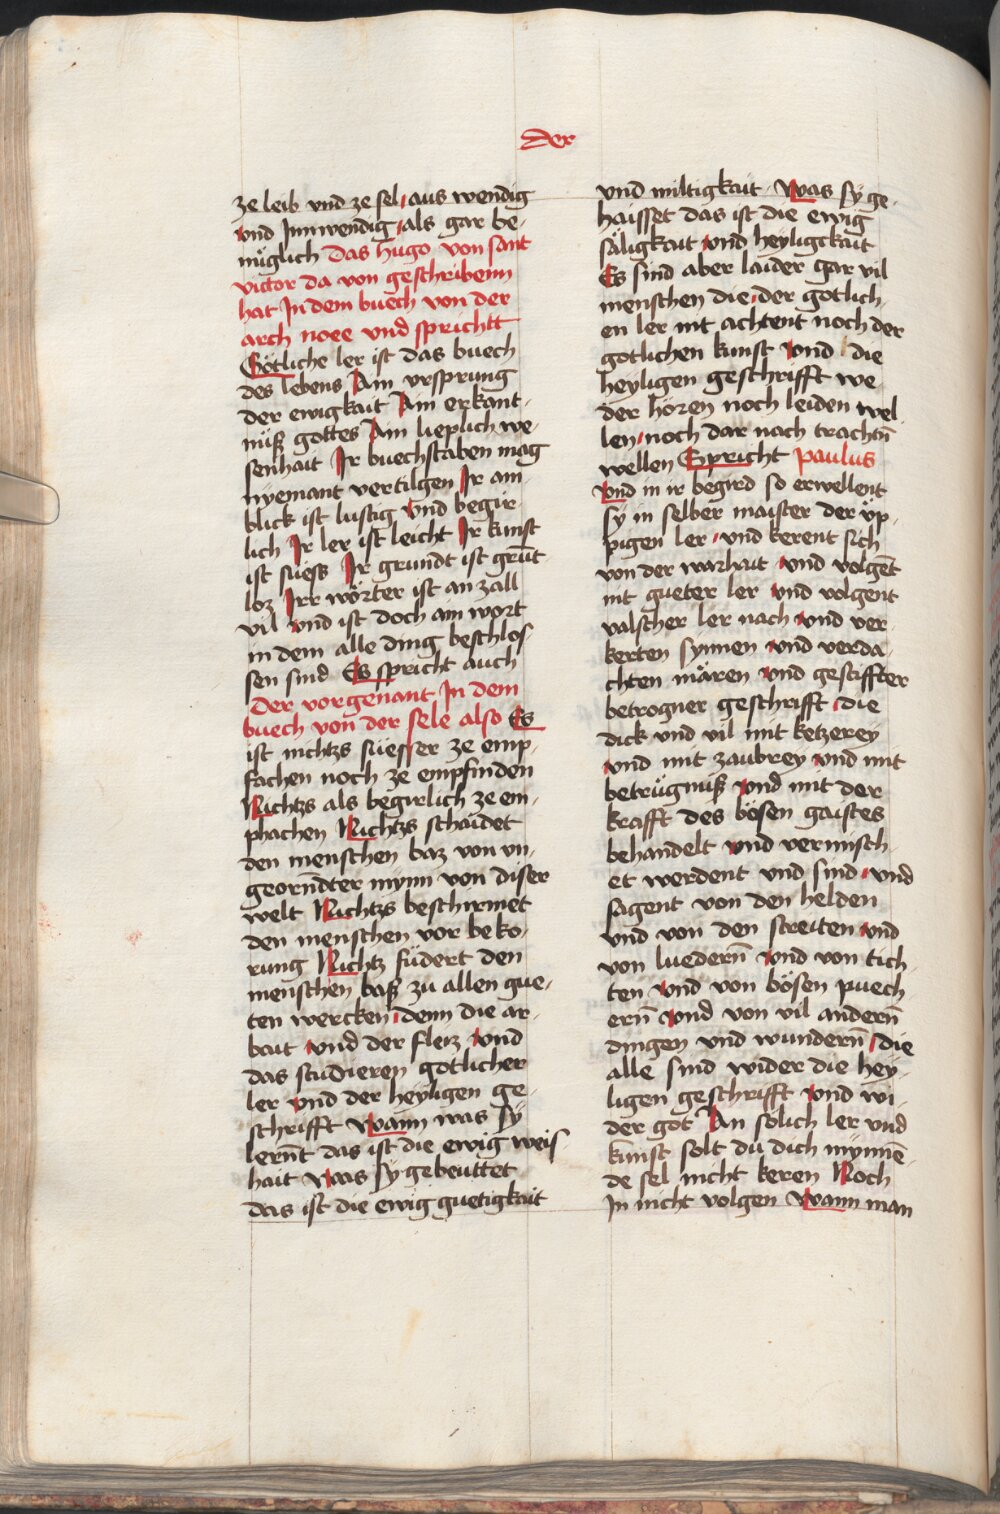 Der
ze leib vnd ze sel, aus wendig
vnd Innwendig, als gar be-
nüglich das hugo von sant
victor da von geschribenn
hat In dem buech von der
arch noee vnd sprichtt
Götliche ler ist das buech
des lebens Ain vrsprung
der ewigkait Ain erkant-
nüß gottes Ain lieplich we-
senhait Ir buechstaben mag
nyemant vertilgen Ir an-
blick ist lustig vnd begir-
lich Ir ler ist leicht Ir kunst
ist süess Ir grundt ist grūt-
loz Irr wörter ist an zall
vil vnd ist doch ain wort
in dem alle ding beschlos-
sen sind Es spricht auch
der vorgenant In dem
buech von der sele also Es
ist nichtzs süesser ze emp-
fachen noch ze empfinden
Nichtzs als begirlich ze em-
phachen Nichtzs schaidet
den menschen baz von vn-
georn̄dter mynn von diser
welt Nichtzs beschirmet
den menschen vor beko-
rung Nichtz füdert den
menschen baß zu allen gue-
ten wercken, denn die ar-
bait vnd der fleiz vnd
das studieren gotlicher
ler vnd der heyligen ge-
schrifft Wann was sy
lern̄t das ist die ewig weis-
hait Was sy gebeuttet
das ist die ewig guetigkait
vnd miltigkait. Was sy ge-
haisset das ist die ewig
säligkait vnd heyligckait
Es sind aber laider gar vil
menschen die, der götlich-
en ler nit achtent noch der
gotlichen kunst vnd die
heyligen geschrifft we-
der hören noch leiden wel-
len, noch dar nach trachtn̄
wellen Spricht paulus
Vnd in ir begird so erwellent
sy in selber maister der üp-
pigen ler, vnd kerent sich
von der warhait vnd volgēt
nit gueter ler vnd volgent
valscher ler nach vnd ver-
kerten synnen vnd verda-
chten mären vnd gestiffter
betrogner geschrifft, die
dick vnd vil mit ketzerey
vnd mit zaubrey vnd mit
betrügnüß vnd mit der
krafft des bösen gaistes
behandelt vnd vermisch-
et werdent vnd sind, vnd
sagent von den helden
vnd von den streiten vnd
von luedern̄ vnd von tich-
ten vnd von bösen puech-
ern̄ vnd von vil andern̄
dingen vnd wundern̄, die
alle sind wider die hey-
ligen geschrifft vnd wi-
der got An solich ler vnd
kunst solt du dich mynnē-
de sel nicht keren Noch
In nicht volgen Wann man